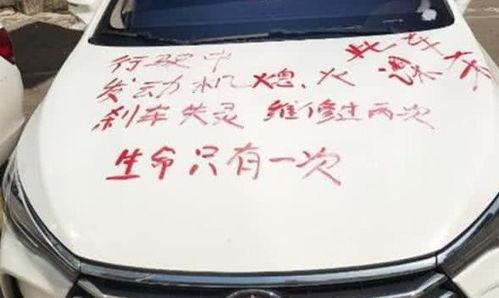 行驶中
发动机熄火
刹车失灵 维修过两次
生命只有一次
此车